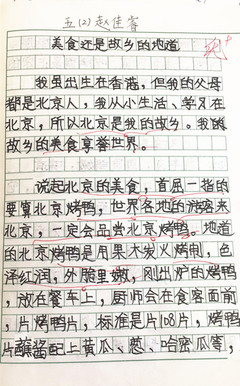 五(2)赵佳睿
美食还是故乡的地道
我虽出生在香港，但我的父母
都是北京人，我从小生活、学习在
北京，所以北京是我的故乡。我的
故乡的美食享誉世界。
说起北京的美食，首屈一指的
要算北京烤鸭，世界各地的游客来
北京，一定会品尝北京烤鸭。地道
的北京烤鸭是用果木炭火烤制，色
泽红润，外脆里嫩，刚出炉的烤鸭
，放在餐车上，厨师会在食客面前
，片烤鸭片，标准是片108片，烤鸭
片蘸酱配上黄瓜、葱、哈密瓜等，